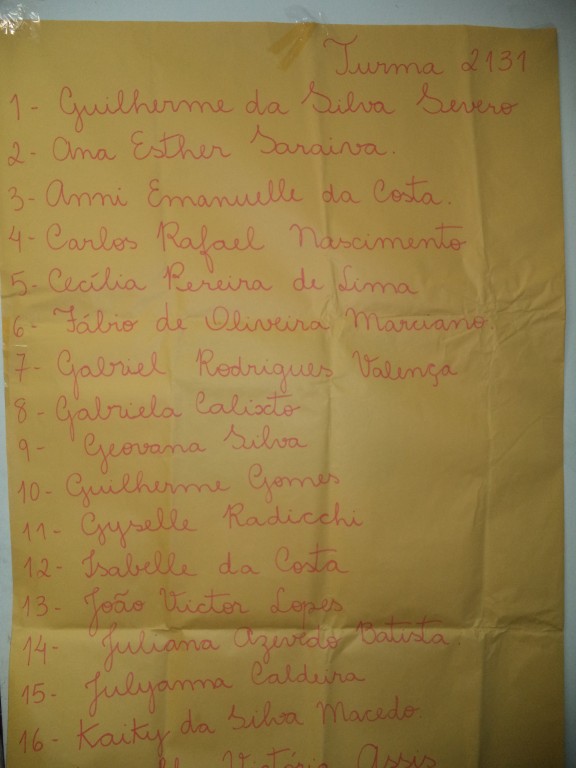 Turma 2131
1- Guilherme da Silva Severo
2- Ana Esther Saraiva.
3- Anni Emanuelle da Costa.
4- Carlos Rafael Nascimento
5- Cecília Pereira de Lima
6- Fábio de Oliveira Marciano.
7- Gabriel Rodrigues Valença
8- Gabriela Calixto
9- Geovana Silva
10- Guilherme Gomes
11- Gyselle Radicchi
12- Isabelle da Costa
13- João Victor Lopes
14- Juliana Azevedo Batista.
15- Julyanna Caldeira
16- Kaiky da Silva Macedo.
Victória Assis